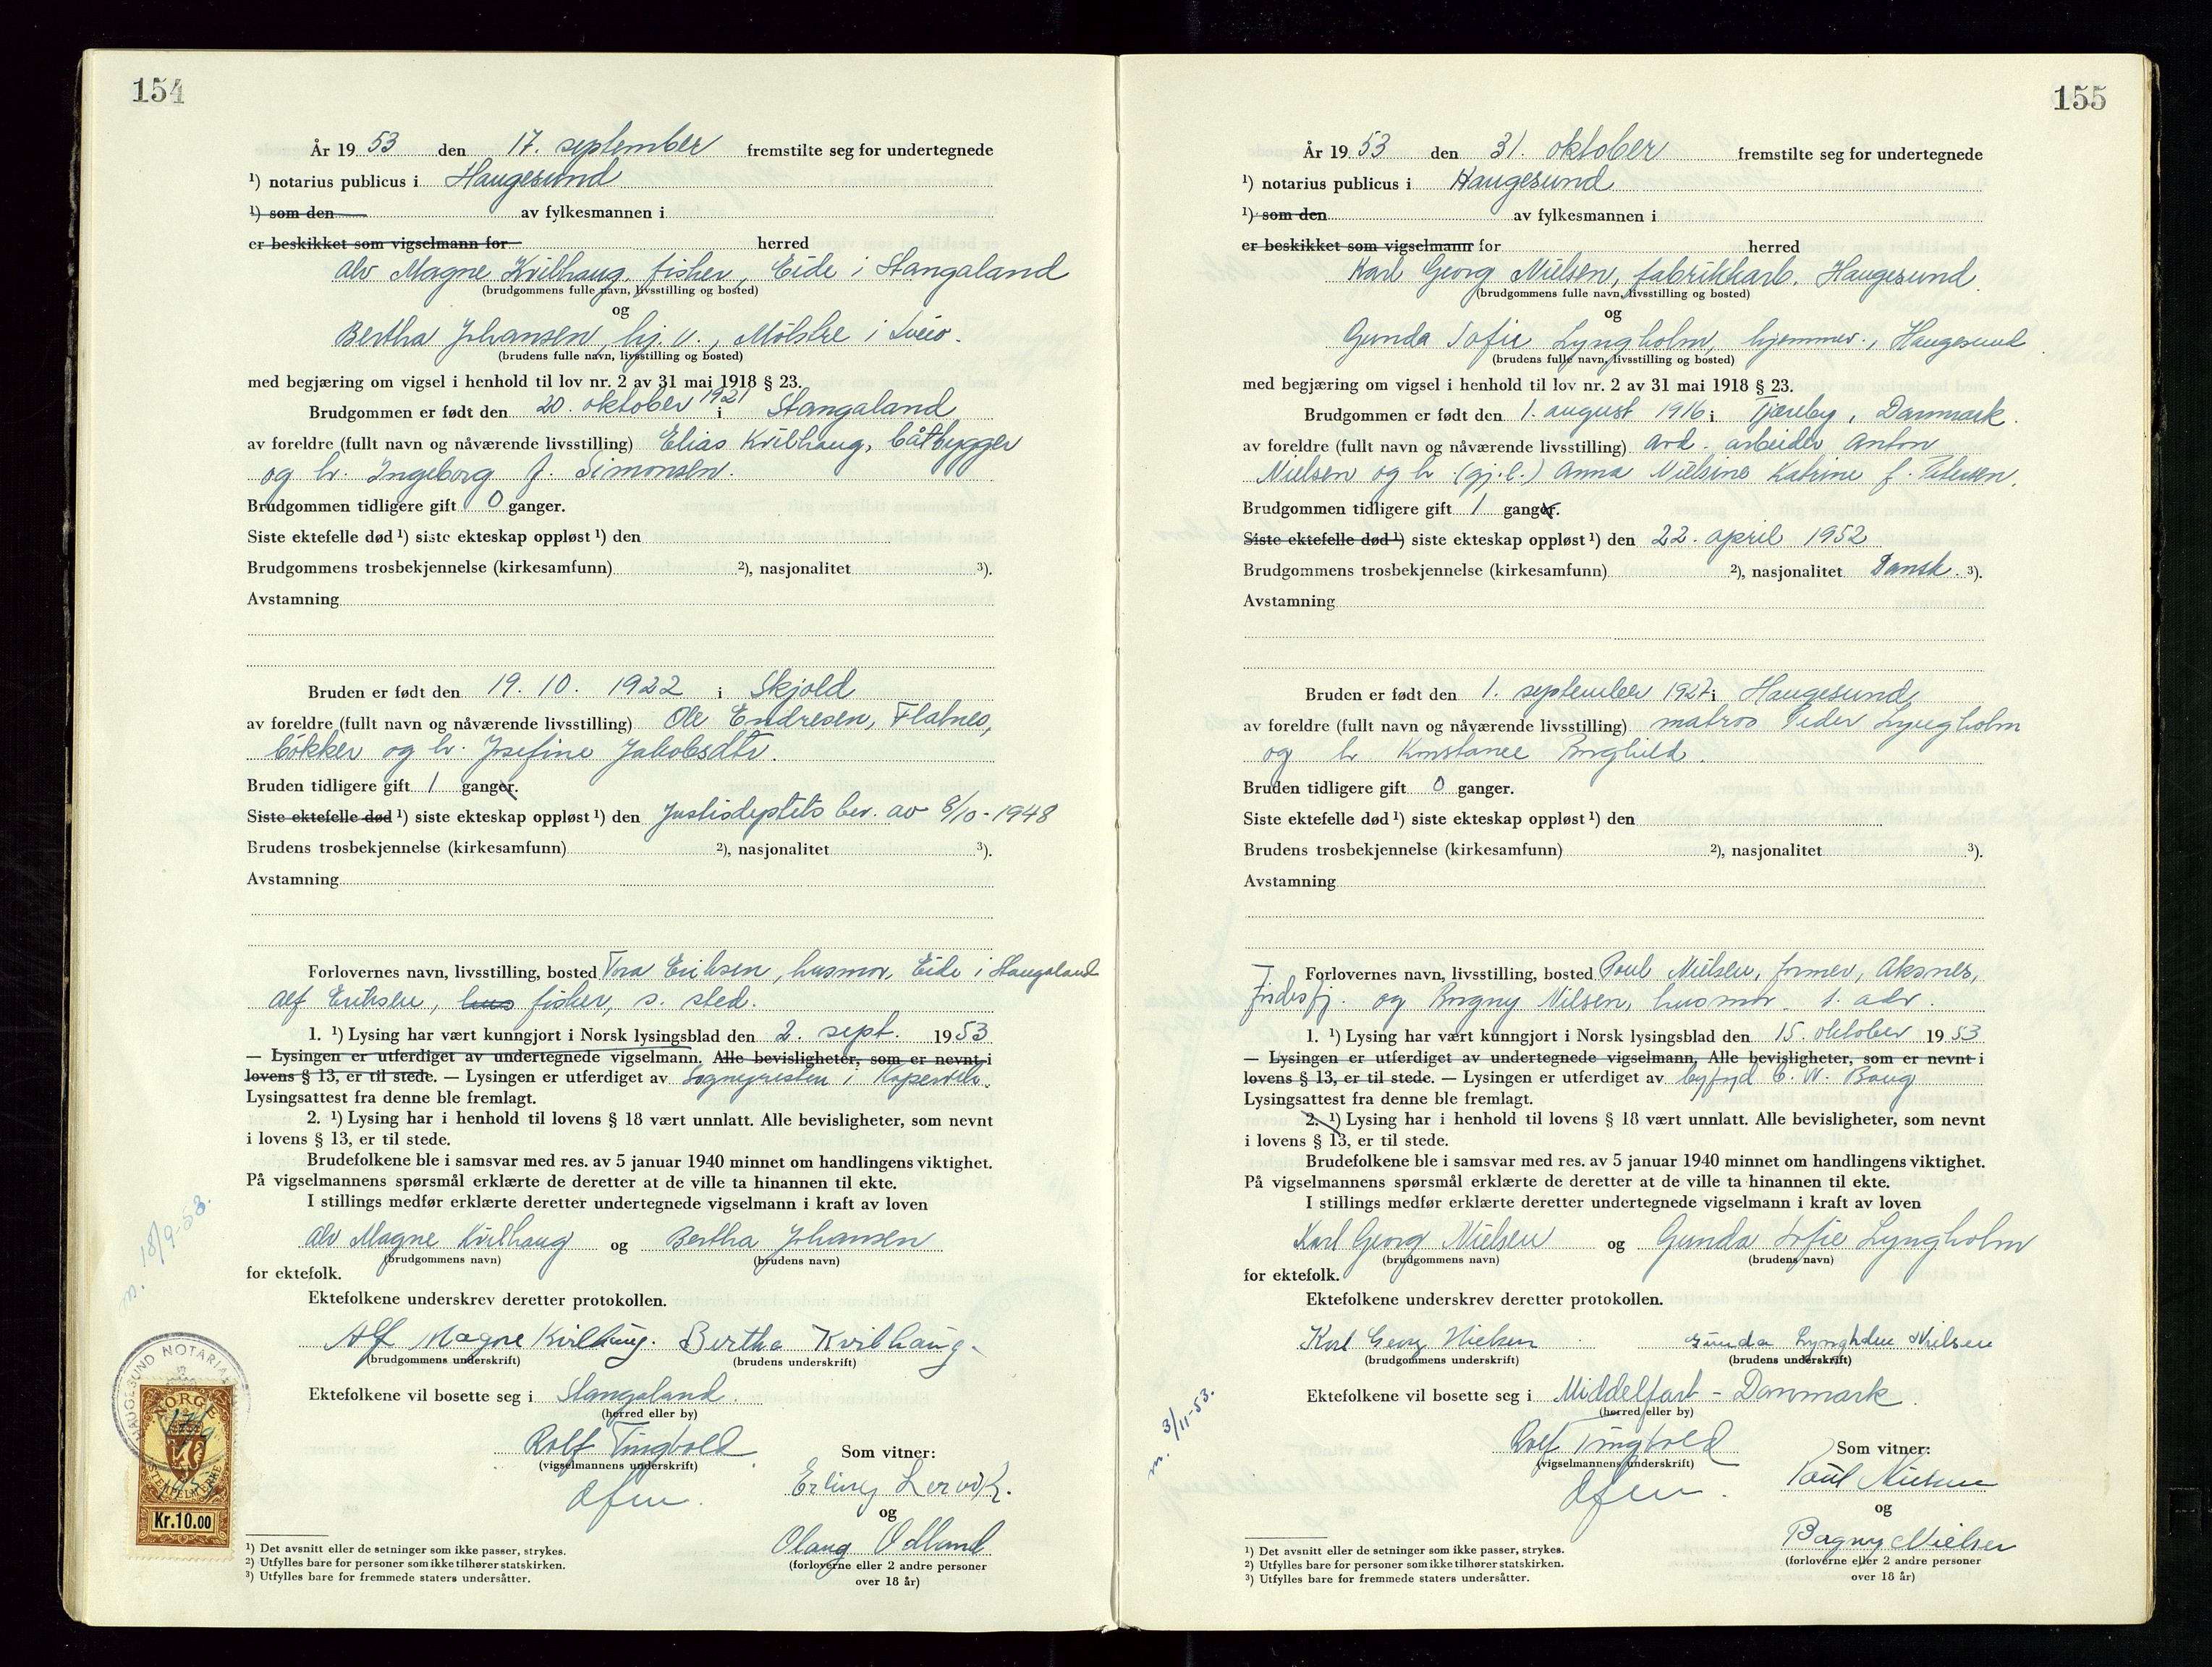 154
År 1953 den 17. september fremstilte seg for undertegnede
¹) notarius publicus i Haugesund
¹) som den av fylkesmannen i
er beskikket som vigselmann for herred
Alv Magne Kvilhaug, fisker, Eide i Stangaland
(brudgommens fulle navn, livsstilling og bosted)
og
Bertha Johansen, hj.v., Mølstre i Sveio.
(brudens fulle navn, livsstilling og bosted)
med begjæring om vigsel i henhold til lov nr. 2 av 31 mai 1918 § 23.
Brudgommen er født den 20. oktober 1921 i Stangaland
av foreldre (fullt navn og nåværende livsstilling) Elias Kvilhaug, båtbygger
og h. Ingeborg f. Simonsen.
Brudgommen tidligere gift 0 ganger.
Siste ektefelle død ¹) siste ekteskap oppløst ¹) den
Brudgommens trosbekjennelse (kirkesamfunn) ²), nasjonalitet ³).
Avstamning
Bruden er født den 19. 10. 1922 i Skjold
av foreldre (fullt navn og nåværende livsstilling) Ole Endresen, Flatnes,
bøkker og h. Josefine Jakobsdtr.
Bruden tidligere gift 1 ganger.
Siste ektefelle død ¹) siste ekteskap oppløst ¹) den Justisdeptets bev. av 8/10-1948
Brudens trosbekjennelse (kirkesamfunn) ²), nasjonalitet ³).
Avstamning
Forlovernes navn, livsstilling, bosted Tora Eriksen, husmor, Eide i Stangaland
Alf Eriksen, hus fisker, s. sted.
1. ¹) Lysing har vært kunngjort i Norsk lysingsblad den 2. sept. 1953
— Lysingen er utferdiget av undertegnede vigselmann. Alle bevisligheter, som er nevnt i
lovens § 13, er til stede. — Lysingen er utferdiget av Sognepresten i Kopervik.
Lysingsattest fra denne ble fremlagt.
2. ¹) Lysing har i henhold til lovens § 18 vært unnlatt. Alle bevisligheter, som nevnt
i lovens § 13, er til stede.
Brudefolkene ble i samsvar med res. av 5 januar 1940 minnet om handlingens viktighet.
På vigselmannens spørsmål erklærte de deretter at de ville ta hinannen til ekte.
I stillings medfør erklærte deretter undertegnede vigselmann i kraft av loven
Alv Magne Kvilhaug og Bertha Johansen
(brudgommens navn) (brudens navn)
for ektefolk.
m. 18/9-53.
Ektefolkene underskrev deretter protokollen.
Alf Magne Kvilhaug. Bertha Kvilhaug.
(brudgommens underskrift) (brudens underskrift)
Ektefolkene vil bosette seg i Stangaland.
(herred eller by)
Rolf Tingvold
(vigselmannens underskrift)
Som vitner:
Erling Lervik.
og
Olaug Odland
(forloverne eller 2 andre personer
over 18 år)
HAUGESUND NOTARIA
NORGE
STEMPELMERKE
Kr.10.00
¹) Det avsnitt eller de setninger som ikke passer, strykes.
²) Utfylles bare for personer som ikke tilhører statskirken.
³) Utfylles bare for fremmede staters undersåtter.
155
År 1953 den 31. oktober fremstilte seg for undertegnede
¹) notarius publicus i Haugesund
¹) som den av fylkesmannen i
er beskikket som vigselmann for herred
Karl Georg Nielsen, fabrikkarb. Haugesund.
(brudgommens fulle navn, livsstilling og bosted)
og
Gunda Sofie Lyngholm, hjemmev., Haugesund
(brudens fulle navn, livsstilling og bosted)
med begjæring om vigsel i henhold til lov nr. 2 av 31 mai 1918 § 23.
Brudgommen er født den 1. august 1916 i Tjæreby, Danmark.
av foreldre (fullt navn og nåværende livsstilling) avd. arbeider Anton
Nielsen og h. (gj.l.) Anna Nielsine Katrine f. Petersen.
Brudgommen tidligere gift 1 ganger.
Siste ektefelle død ¹) siste ekteskap oppløst ¹) den 22. april 1952
Brudgommens trosbekjennelse (kirkesamfunn) ²), nasjonalitet Dansk. ³).
Avstamning
Bruden er født den 1. september 1927 i Haugesund
av foreldre (fullt navn og nåværende livsstilling) matros Peder Lyngholm
og h. Konstance Borghild.
Bruden tidligere gift 0 ganger.
Siste ektefelle død ¹) siste ekteskap oppløst ¹) den
Brudens trosbekjennelse (kirkesamfunn) ²), nasjonalitet ³).
Avstamning
Forlovernes navn, livsstilling, bosted Poul Nielsen, former, Aksnes,
og Borgny Nilsen, husmor s. adr.
1. ¹) Lysing har vært kunngjort i Norsk lysingsblad den 15. oktober 1953
— Lysingen er utferdiget av undertegnede vigselmann, Alle bevisligheter, som er nevnt i
lovens § 13, er til stede. — Lysingen er utferdiget av byfgd C. W. Baug
Lysingsattest fra denne ble fremlagt.
2. ¹) Lysing har i henhold til lovens § 18 vært unnlatt. Alle bevisligheter, som nevnt
i lovens § 13, er til stede.
Brudefolkene ble i samsvar med res. av 5 januar 1940 minnet om handlingens viktighet.
På vigselmannens spørsmål erklærte de deretter at de ville ta hinannen til ekte.
I stillings medfør erklærte deretter undertegnede vigselmann i kraft av loven
Karl Georg Nielsen og Gunda Sofie Lyngholm
(brudgommens navn) (brudens navn)
for ektefolk.
Ektefolkene underskrev deretter protokollen.
Karl Georg Nielsen Gunda Lyngholm Nielsen
(brudgommens underskrift) (brudens underskrift)
m. 3/11-53.
Ektefolkene vil bosette seg i Middelfart - Danmark.
(herred eller by)
Rolf Tingvold
(vigselmannens underskrift)
Som vitner:
Poul Nielsen
og
Borgny Nielsen
(forloverne eller 2 andre personer
over 18 år)
¹) Det avsnitt eller de setninger som ikke passer, strykes.
²) Utfylles bare for personer som ikke tilhører statskirken.
³) Utfylles bare for fremmede staters undersåtter.